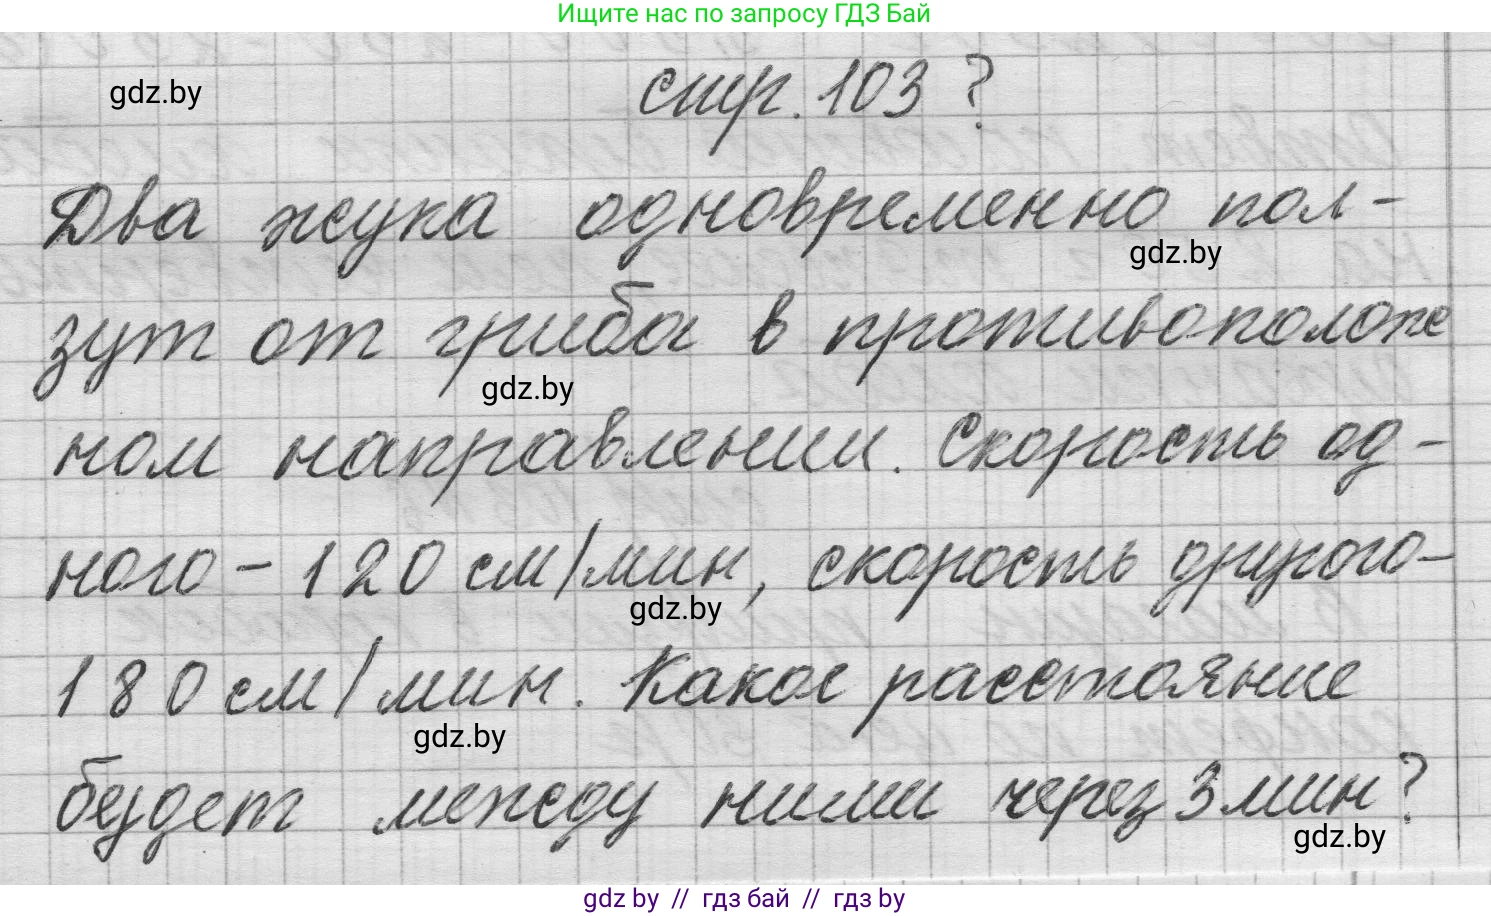 Ищите нас по запросу ГДЗ Бай
стр. 103 ?
gdz.by
Два жука одновременно пол-
gdz.by
зут от гриба в противополож
gdz.by
ном направлении. Скорость од-
ного - 120 см/мин, скорость другого-
gdz.by
180 см/мин. Какое расстояние
gdz.by
будет между ними через 3 мин?
gdz.by
gdz.by // гдз бай // гдз by